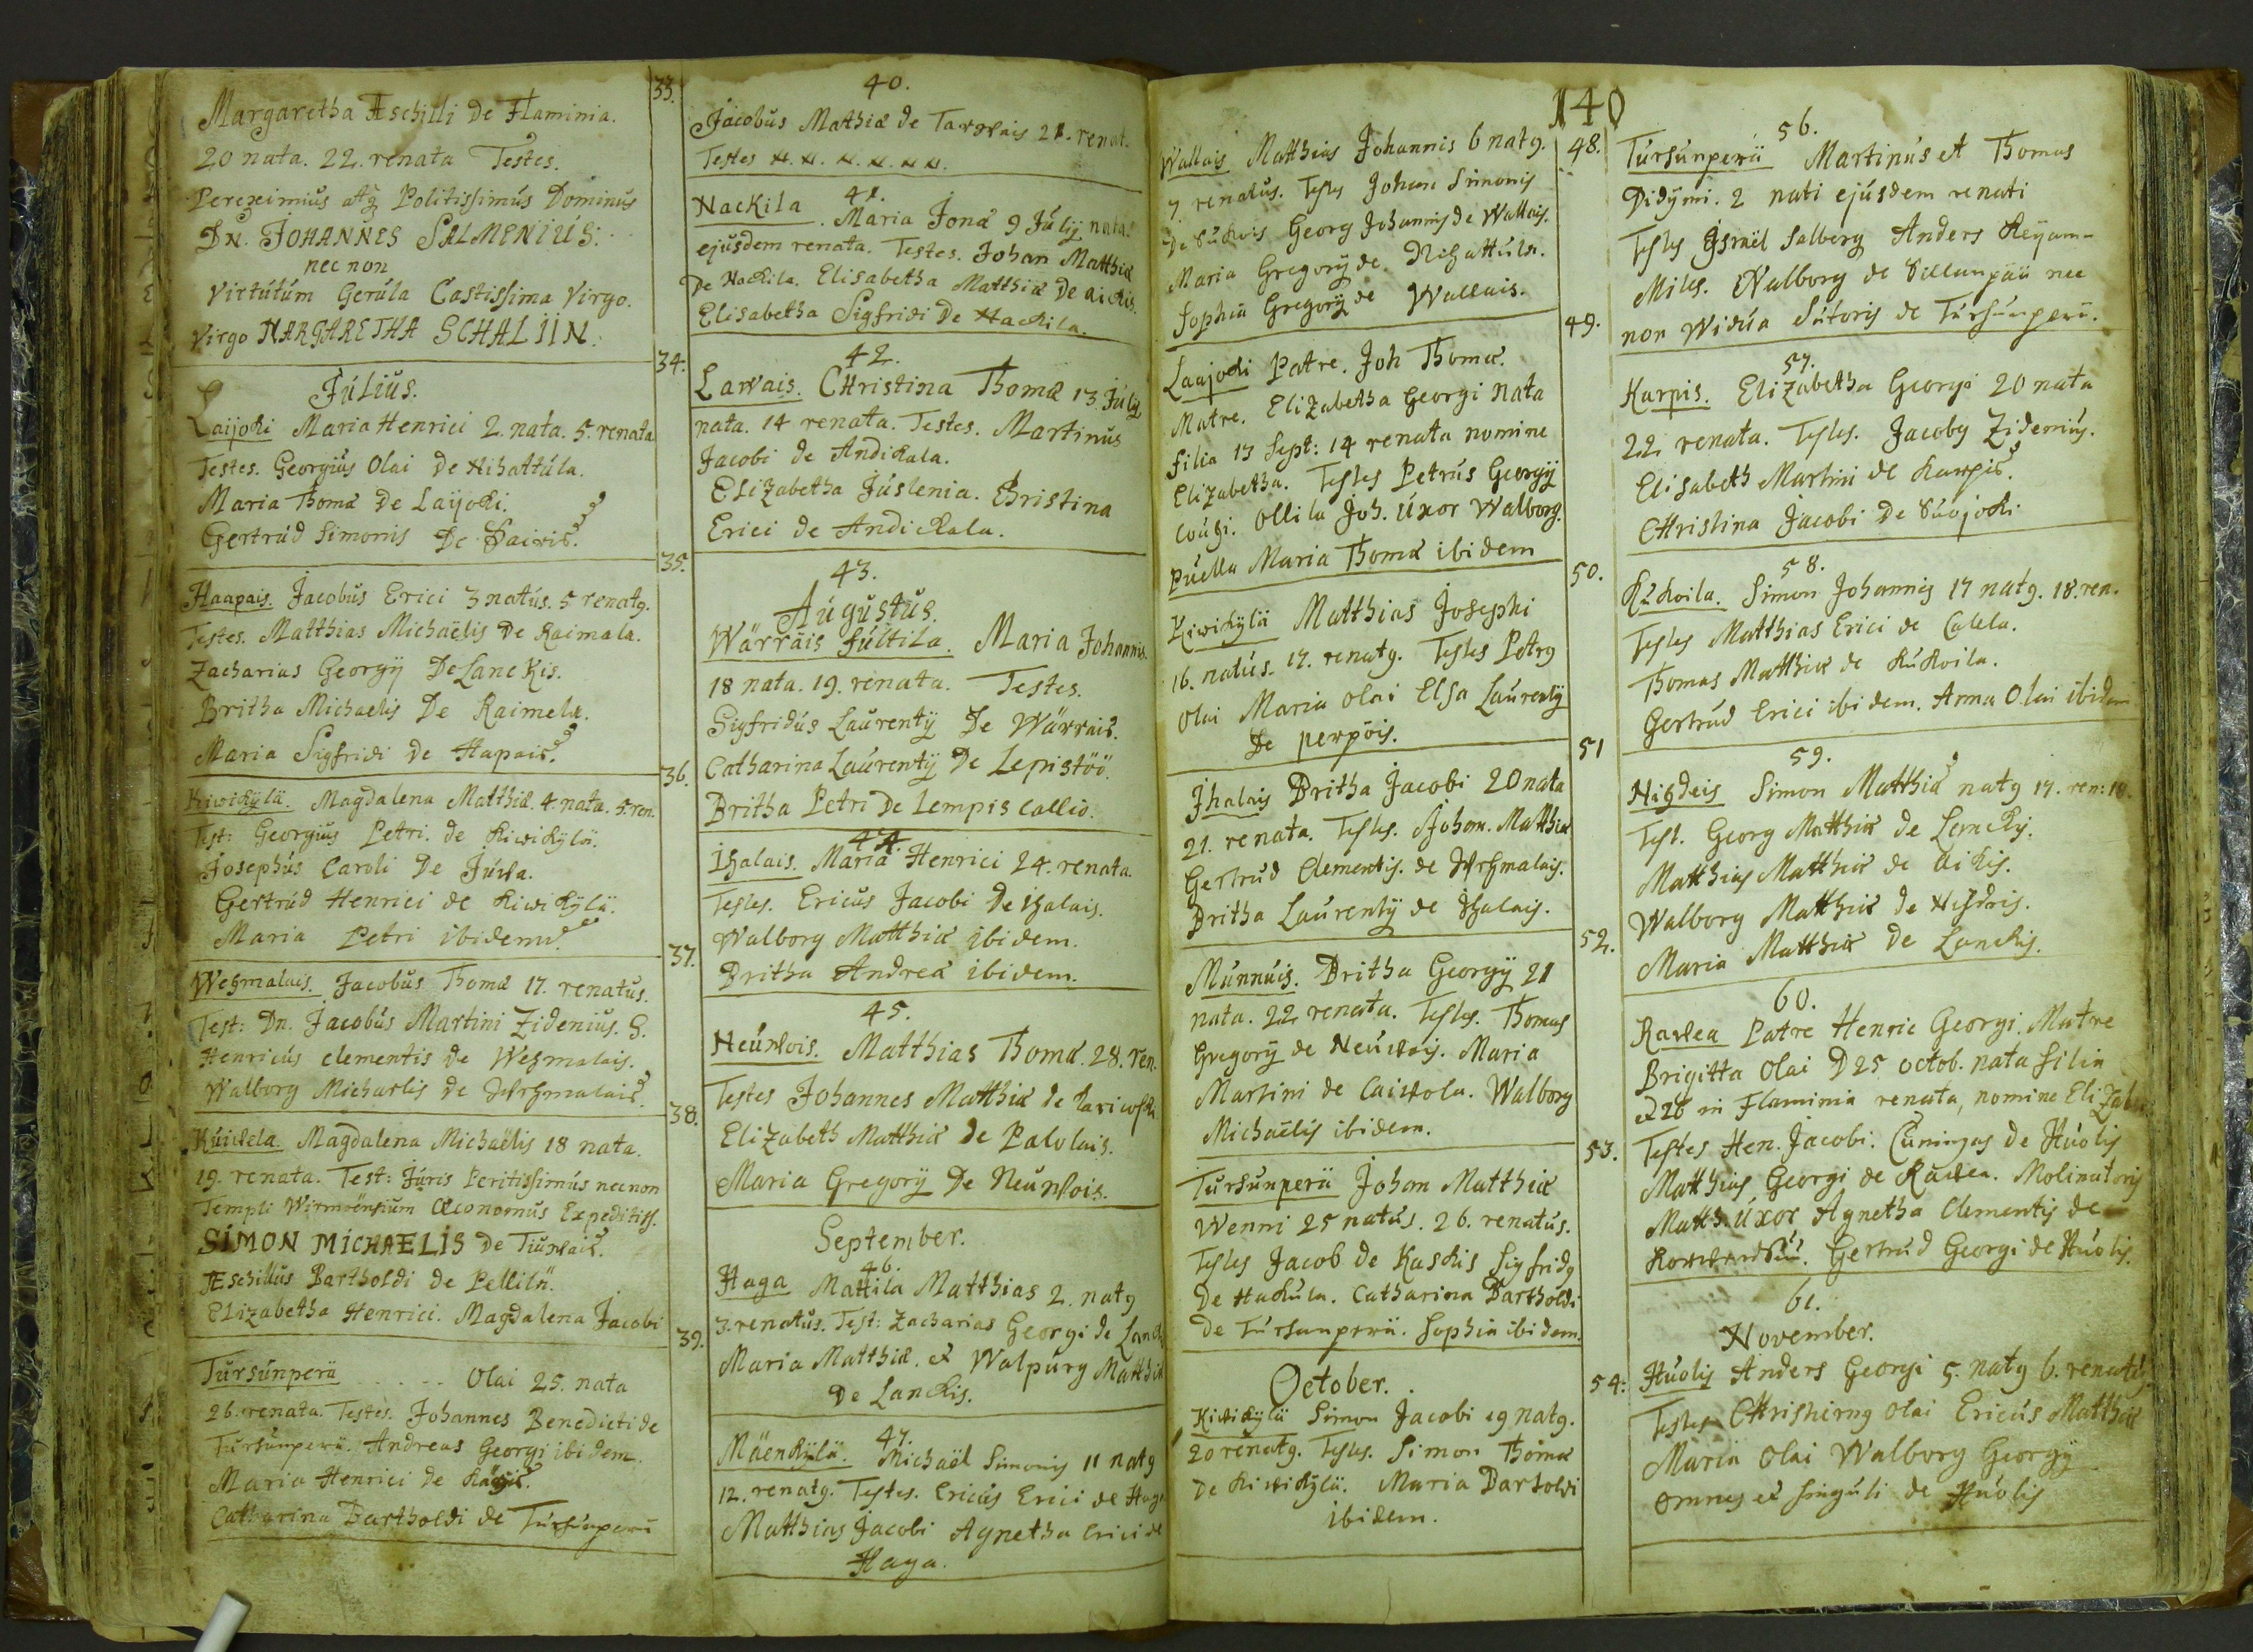 Margaretha Æschilli De Flaminia.
20 nata. 22. renata Testes.
Perexeimius atq Politissimus Dominus
Dn. JOHANNES SALMENIUS.
nec non
Virtutum Gerula Castissima Virgo.
Virgo MARGARETHA SCHALIIN.
33.
Julius.
Laijoki Maria Henrici 2. nata. 5. renata
Testes. Georgius Olai De Nihattula.
Maria Thomæ De Laijoki.
Gertrud Simonis De
34.
Haapais. Jacobus Erici 3 natus. 5 renatq.
Testes. Matthias Michaëlis De Raimala.
Zacharias Georgij De Lanckis.
Britha Michaelis De Raimela.
Maria Sigfridi De Hapais.
35.
Kiwikylä. Magdalena Matthiæ 4. nata. 5. ren.
Test: Georgius Petri. de Kiwikylä.
Josephus Caroli De Juva.
Gertrud Henrici de Kiwikylä.
Maria Petri ibidem.
36.
Wehmalais. Jacobus Thomæ 17. renatus.
Test: Dn. Jacobus Martini Zidenius. S.
Henricus Clementis de Wehmalais.
Walborg Michaelis de Wehmalais.
37.
Kuivela. Magdalena Michaëlis 18 nata.
19. renata. Test: Juris Peritissimus necnon
Templi Wirmoënsium Œconomus Expeditiss.
SIMON MICHAELIS De Tiuvais.
Æschillus Bartholdi de Pellilä.
Elizabetha Henrici. Magdalena Jacobi
38.
Tursunperä . . . . . Olai 25. nata
26. renata. Testes. Johannes Benedicti de
Tursunperä. Andreas Georgi ibidem.
Maria Henrici de
Catharina Bartholdi de Tursunperä
39.
40.
Jacobus Mathiæ de Tarvais 21. renat.
Testes N. N. N. N. N N.
41.
Nackila . Maria Jonæ 9 Julij nata.
ejusdem renata. Testes. Johan Matthiæ
De Nackila. Elisabetha Matthiæ De aickis.
Elisabetha Sigfridi De Nackila.
42.
Lawais. Christina Thomæ 13. Julij
nata. 14 renata. Testes. Martinus
Jacobi de Andickala.
Elizabetha Juslenia. Christina
Erici de Andickala.
43.
Augustus.
Wärräis Sultila. Maria Johannis.
18 nata. 19. renata. Testes.
Sigfridus Laurentij De Wärrais.
Catharina Laurentij De Lepistöö.
Britha Petri De Lempis Callio.
44.
Ihalais. Maria Henrici 24. renata.
Testes. Ericus Jacobi De ihalais.
Walborg Matthiæ ibidem.
Britha Andreæ ibidem.
45.
Neuvois. Matthias Thomæ. 28. ren.
Testes Johannes Matthiæ de
Elizabeth Matthiæ de Palvlais.
Maria Gregorij De Neuvois.
September.
46.
Haga Mattila Matthias 2. natq
3. renatus. Test: Zacharias Georgi de Lanck
Maria Matthiæ. et Walpurg Matthiæ
De Lanckis.
47.
Mäenkylä. Michaël Simonis 11 natq
12. renatq. Testes. Ericus Erici de Haga
Matthias Jacobi Agnetha Erici de
Haga.
140
48.
Wallais Matthias Johannis 6 natq.
7. renatus. Testes Johan Simonis
De Suckois Georg Johannis de Wallais.
Maria Gregorij de. Nihattula.
Sophia Gregorij de Wallais.
49.
Laajoki Patre. Joh Thomæ.
Matre. Elizabetha Georgi Nata
filia 13 Sept: 14 renata nomine
Elizabetha. Testes Petrus Georgij
Couhi. Ollila Joh. Uxor Walborg.
Puella Maria Thomæ ibidem
50.
Kiwikylä Matthias Josephi
16. natus. 17. renatq. Testes Petrq
Olai Maria Olai Elsa Laurentij
De perpöis.
51
Ihalais Britha Jacobi 20 nata
21. renata. Testes. Johan. Matthiæ
Gertrud Clementis. de Wehmalais.
Britha Laurentij de Ihalais.
52.
Munnuis. Britha Georgij 21
nata. 22 renata. Testes. Thomas
Gregorij de Neuvois. Maria
Martini de Caivola. Walborg
Michaëlis ibidem.
53.
Tursunperä Johan Matthiæ
Wenni 25 natus. 26. renatus.
Testes Jacob de Kaskis Sigfridq
De Hakula. Catharina Bartholdi
de Tursunperä. Sophia ibidem.
October.
54:
Kivikylä Simon Jacobi 19 natq.
20 renatq. Testes. Simon Thomæ
De Kivikylä. Maria Bartoldi
ibidem.
56.
Tursunperä Martinus et Thomas
Didymi. 2 nati ejusdem renati
Testes Israël Salberg Anders
Miles. Walborg de Sillanpää nec
non Widua Sutoris de Tursunperä.
57.
Karpis. Elizabetha Georgi 20 nata
22 renata. Testes. Jacobq Zidenius.
Elisabeth Martini de Karpis.
Christina Jacobi De Suojoki.
58.
Kukoila. Simon Johannis 17 natq. 18. ren.
Testes Matthias Erici de Calela.
Thomas Matthiæ de Kukoila.
Gertrud Erici ibidem. Anna Olai ibidem
59.
Nihdeis Simon Matthiæ natq 17. ren: 18.
Test. Georg Matthiæ de Lancky.
Matthias Matthiæ de Aickis.
Walborg Matthiæ de Nihdois.
Maria Matthiæ De Lanckis.
60.
Ravea Patre Henric Georgi. Matre
Brigitta Olai D 25 octob. nata filia
et 26 in Flaminia renata, nomine Elizab
Testes Hen. Jacobi. Cuningas de Huolis
Matthias Georgi de Ravea. Molinatoris
Matth. Uxor Agnetha Clementis de
Gertrud Georgi de Huolis.
61.
November.
Huolis Anders Georgi 5. natq 6. renatus
Testes Olai Ericus Matthiæ
Maria Olai Walborg Georgij
omnes et singuli de Huolis